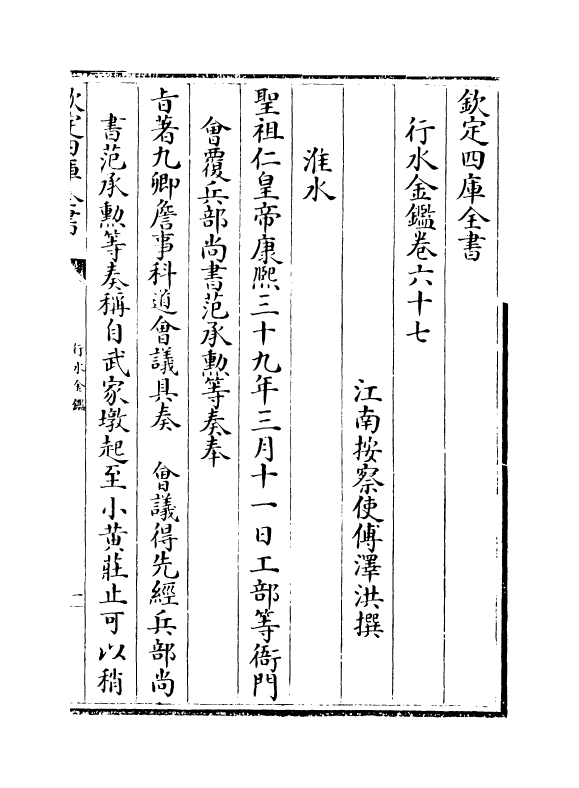 欽定四庫全書
行水金鑑卷六十七
江南按察使傅澤洪撰
淮水
聖祖仁皇帝康熙三十九年三月十一日工部等衙門
會覆兵部尚書范承勲等奏奉
旨著九卿詹事科道會議具奏 會議得先經兵部尚
書范承勲等奏稱自武家墩起至小黄莊止可以稍
欽定四庫全書
行水金鑑
一